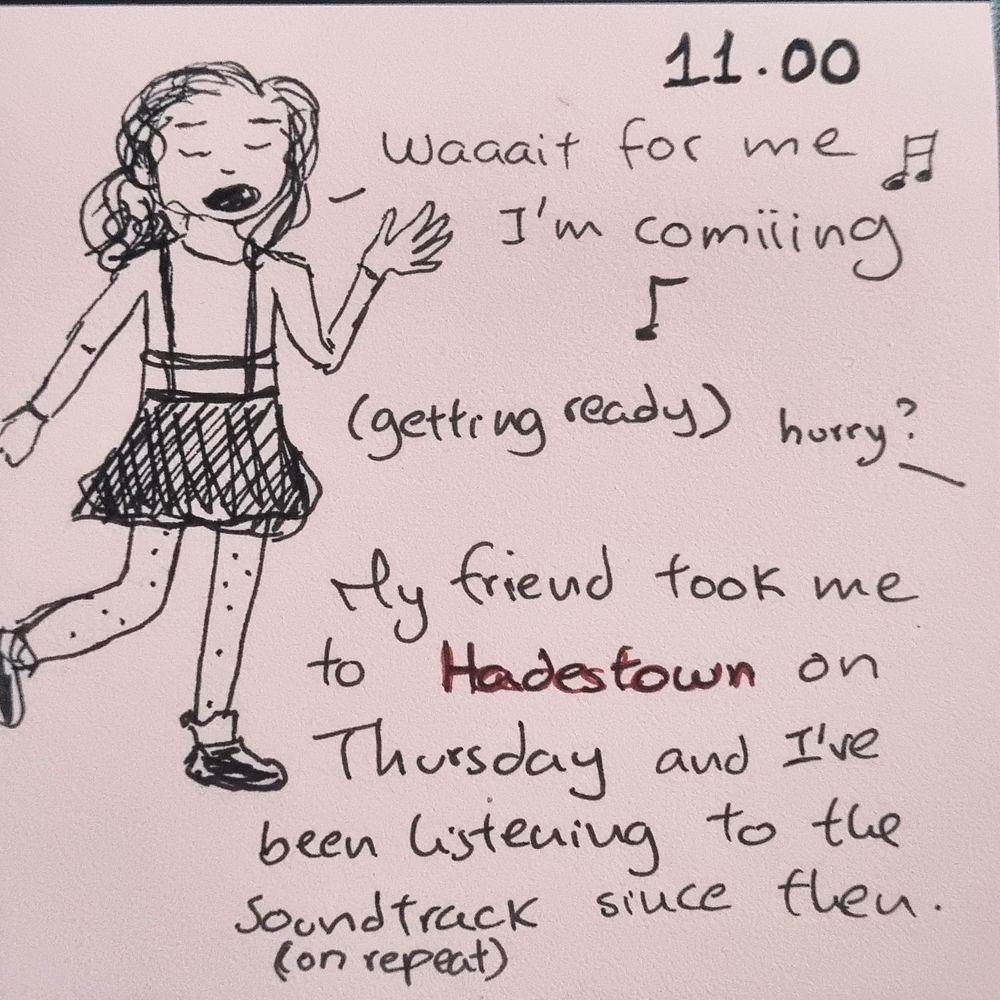 11.00
waaait for me
I'm comiiing
(getting ready) hurry?
My friend took me
to Hadestown on
Thursday and I've
been listening to the
soundtrack since then.
(on repeat)